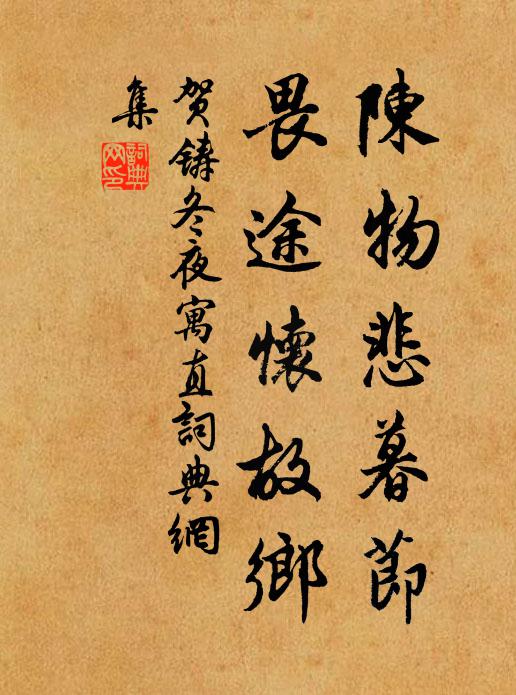 陳物悲暮節
畏途懷故鄉
賀鑄冬夜寓直詞典網
集
詞典
网印